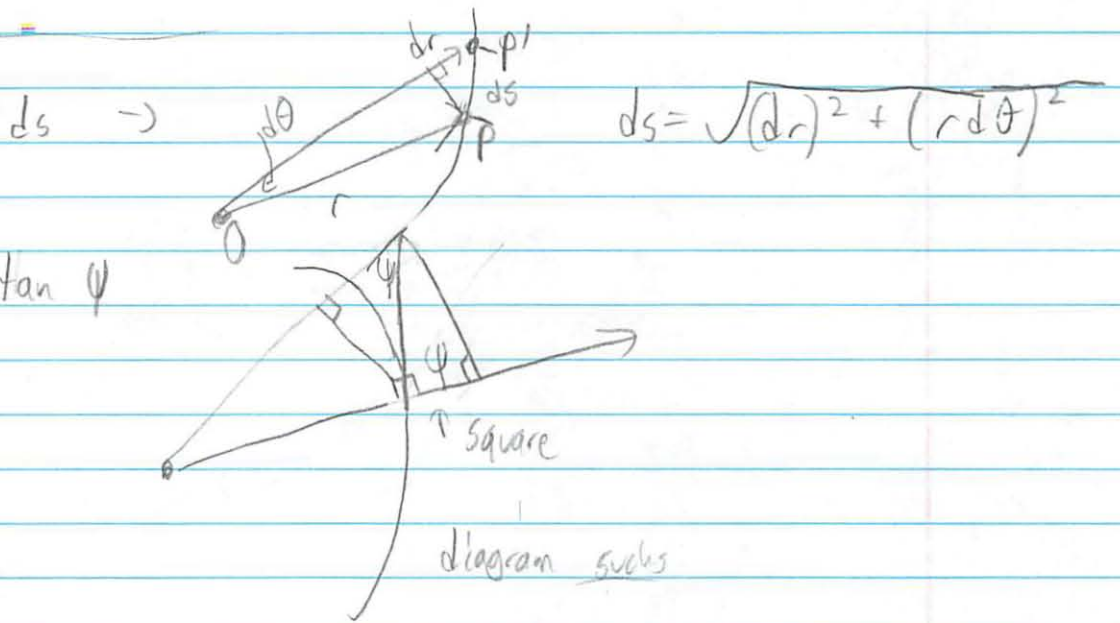 dr P'
ds → dθ ds P ds = √(dr)² + (rdθ)²
r
O
tan ψ ψ
ψ
↑ square
diagram sucks